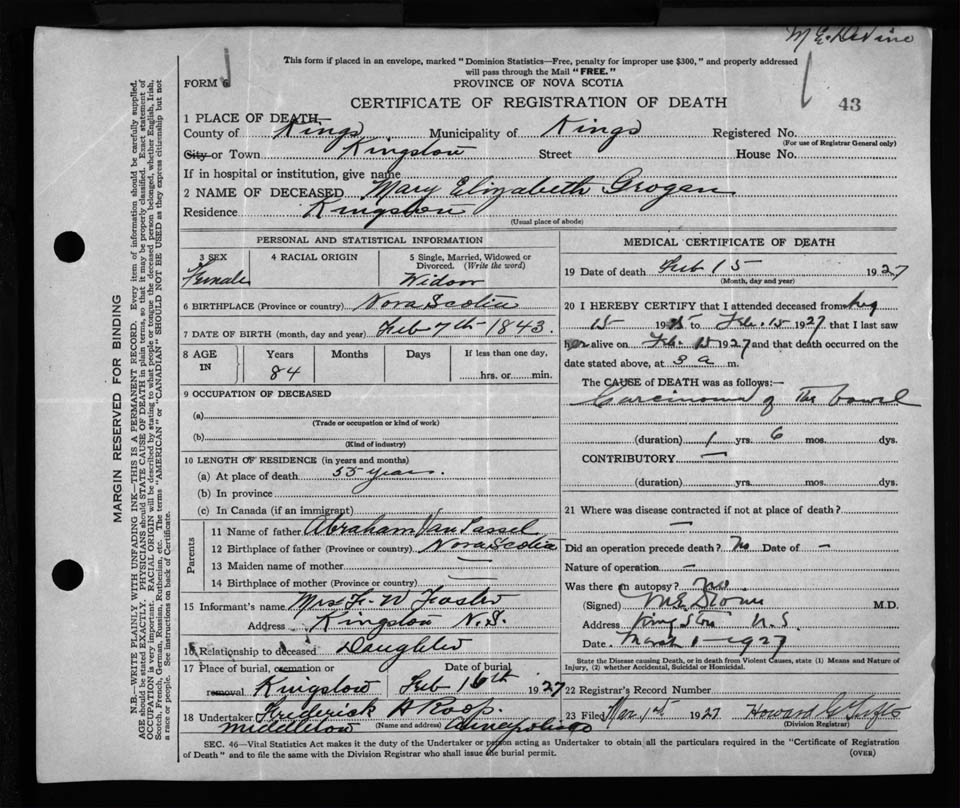 This form if placed in an envelope, marked "Dominion Statistics—Free, penalty for improper use $300," and properly addressed
will pass through the Mail "FREE."
FORM 6
PROVINCE OF NOVA SCOTIA
CERTIFICATE OF REGISTRATION OF DEATH
43
1 PLACE OF DEATH
County of Kings Municipality of Kings Registered No.
(For use of Registrar General only)
City or Town Kingston Street House No.
If in hospital or institution, give name
2 NAME OF DECEASED Mary Elizabeth Grogan
Residence Kingston
(Usual place of abode)
PERSONAL AND STATISTICAL INFORMATION
3 SEX 4 RACIAL ORIGIN 5 Single, Married, Widowed or
Divorced. (Write the word)
Female Widow
6 BIRTHPLACE (Province or country) Nova Scotia
7 DATE OF BIRTH (month, day and year) Feb 7th 1843.
8 AGE IN Years Months Days If less than one day,
84 hrs. or min.
9 OCCUPATION OF DECEASED
(a)
(Trade or occupation or kind of work)
(b)
(Kind of industry)
10 LENGTH OF RESIDENCE (in years and months)
(a) At place of death 55 years.
(b) In province
(c) In Canada (if an immigrant)
Parents
11 Name of father Abraham Van Tassel
12 Birthplace of father (Province or country) Nova Scotia
13 Maiden name of mother —
14 Birthplace of mother (Province or country) —
15 Informant's name Mrs F. W Foster
Address Kingston N.S.
16 Relationship to deceased Daughter
17 Place of burial, cremation or Date of burial
removal Kingston Feb 16th 1927
18 Undertaker Frederick A Roop
Middleton (Name and address) Annapolis Co
MEDICAL CERTIFICATE OF DEATH
19 Date of death Feb 15 1927
(Month, day and year)
20 I HEREBY CERTIFY that I attended deceased from Aug
15 1925 to Feb. 15 1927 that I last saw
her alive on Feb. 15 1927 and that death occurred on the
date stated above, at 3 a m.
The CAUSE of DEATH was as follows:—
Carcinoma of The bowel
(duration) 1 yrs. 6 mos. dys.
CONTRIBUTORY —
(duration) yrs. mos. dys.
21 Where was disease contracted if not at place of death?
—
Did an operation precede death? No Date of —
Nature of operation —
Was there an autopsy? No
(Signed) M.D.
Address Kingston N.S
Date March 1 - 1927
State the Disease causing Death, or in death from Violent Causes, state (1) Means and Nature of
Injury, (2) whether Accidental, Suicidal or Homicidal.
22 Registrar's Record Number
23 Filed Mar. 1st 1927 Howard G
(Division Registrar)
SEC. 46—Vital Statistics Act makes it the duty of the Undertaker or person acting as Undertaker to obtain all the particulars required in the "Certificate of Registration
of Death" and to file the same with the Division Registrar who shall issue the burial permit. (OVER)
MARGIN RESERVED FOR BINDING
N.B.—WRITE PLAINLY WITH UNFADING INK—THIS IS A PERMANENT RECORD. Every item of information should be carefully supplied.
AGE should be stated EXACTLY. PHYSICIANS should STATE CAUSE OF DEATH in plain terms, so that it may be properly classified. Exact statement of
OCCUPATION is very important. RACIAL ORIGIN will be described by stating to what people or tongue the deceased person belonged, whether English, Irish,
Scotch, French, German, Russian, Ruthenian, etc. The terms "AMERICAN" or "CANADIAN" SHOULD NOT BE USED as they express citizenship but not
a race or people. See instructions on back of Certificate.